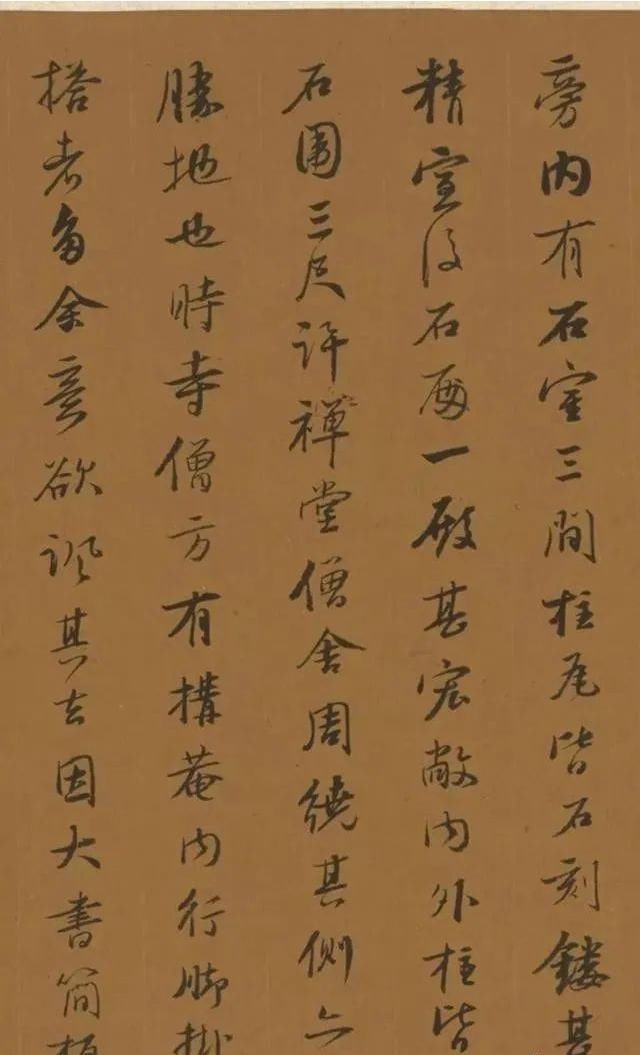 旁内有石室三間柱尾皆石刻鏤甚
精室後石面一殿甚宏敞内外柱皆
石圍三尺許禪堂僧舍周繞其側亦
勝地也時寺僧方有構菴内行脚掛
搭者多余意欲諷其去因大書簡板